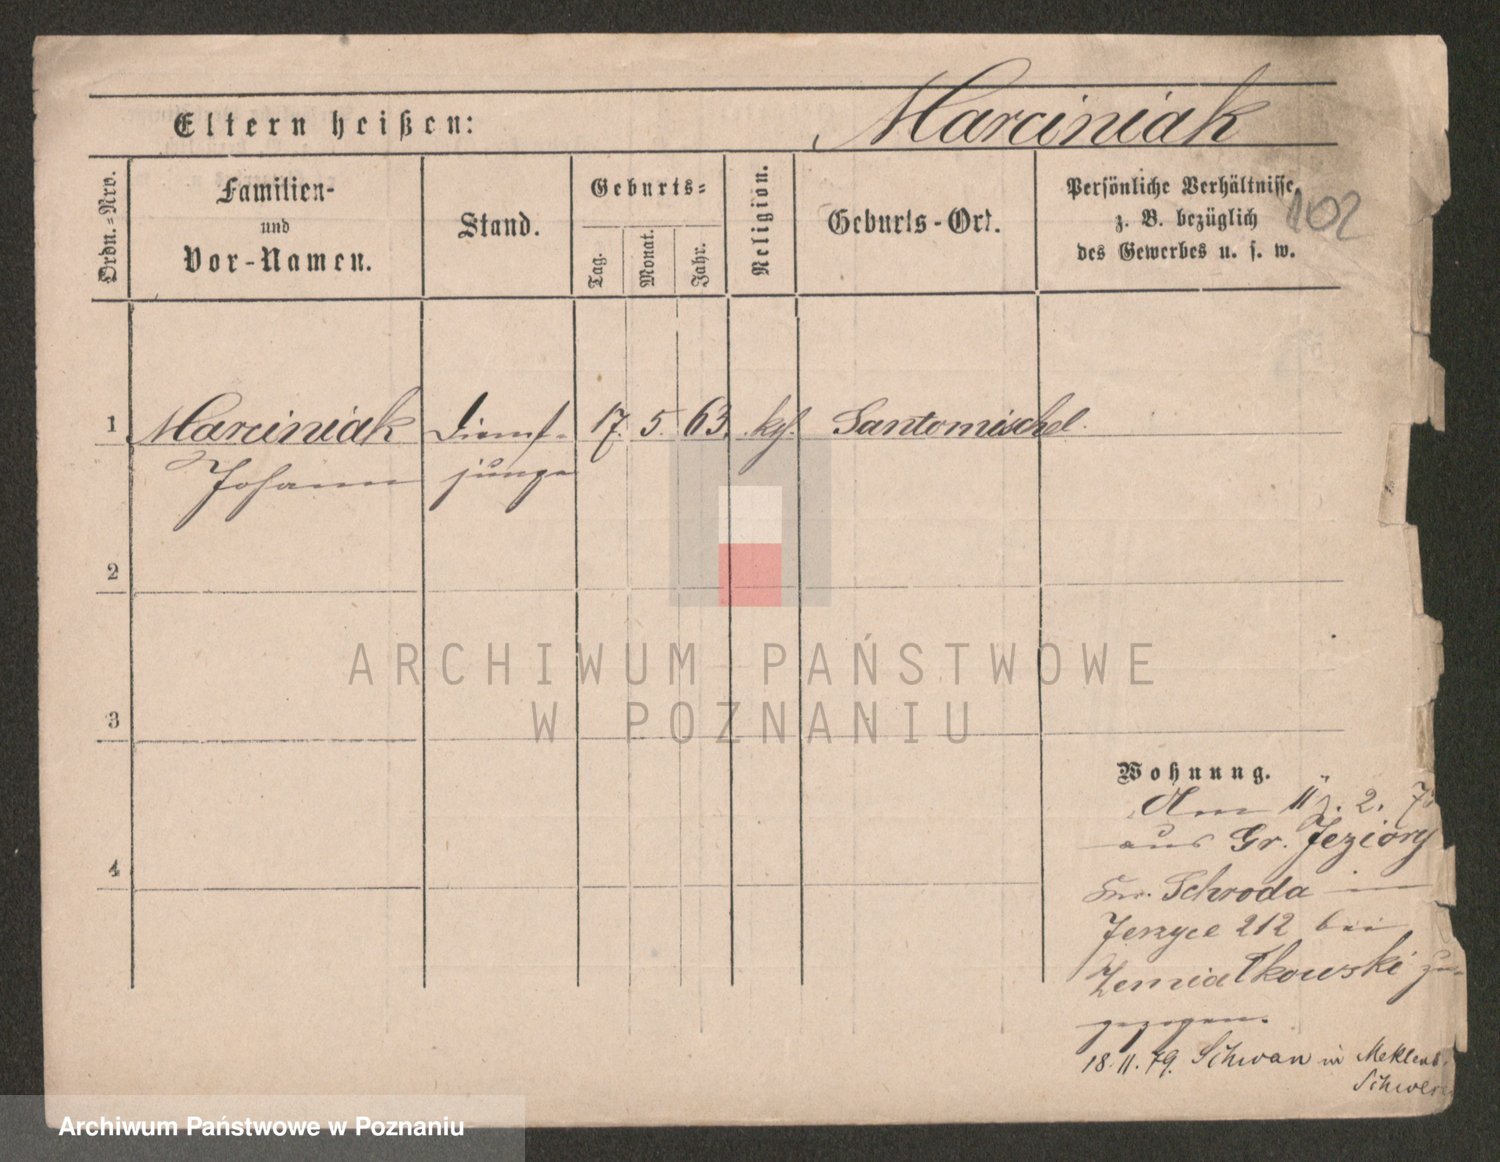 Eltern heißen: Marciniak
102
Ordn.-Nro. Familien- und Vor-Namen. Stand. Geburts- Tag. Monat. Jahr. Religion. Geburts-Ort. Persönliche Verhältnisse, z. B. bezüglich des Gewerbes u. s. w.
1 Marciniak Dienst- 17. 5. 63. kgl. Santomischel.
Johann junge
2
3
4
Wohnung.
Am 11. 2. 7
aus Gr. Jeziory
Kr. Schroda in
Jerzyce 212 bei
Zemiatkowski zu-
gezogen.
18. 11. 79. Schwan in Meklenb.
Schwere
ARCHIWUM PAŃSTWOWE
W POZNANIU
Archiwum Państwowe w Poznaniu